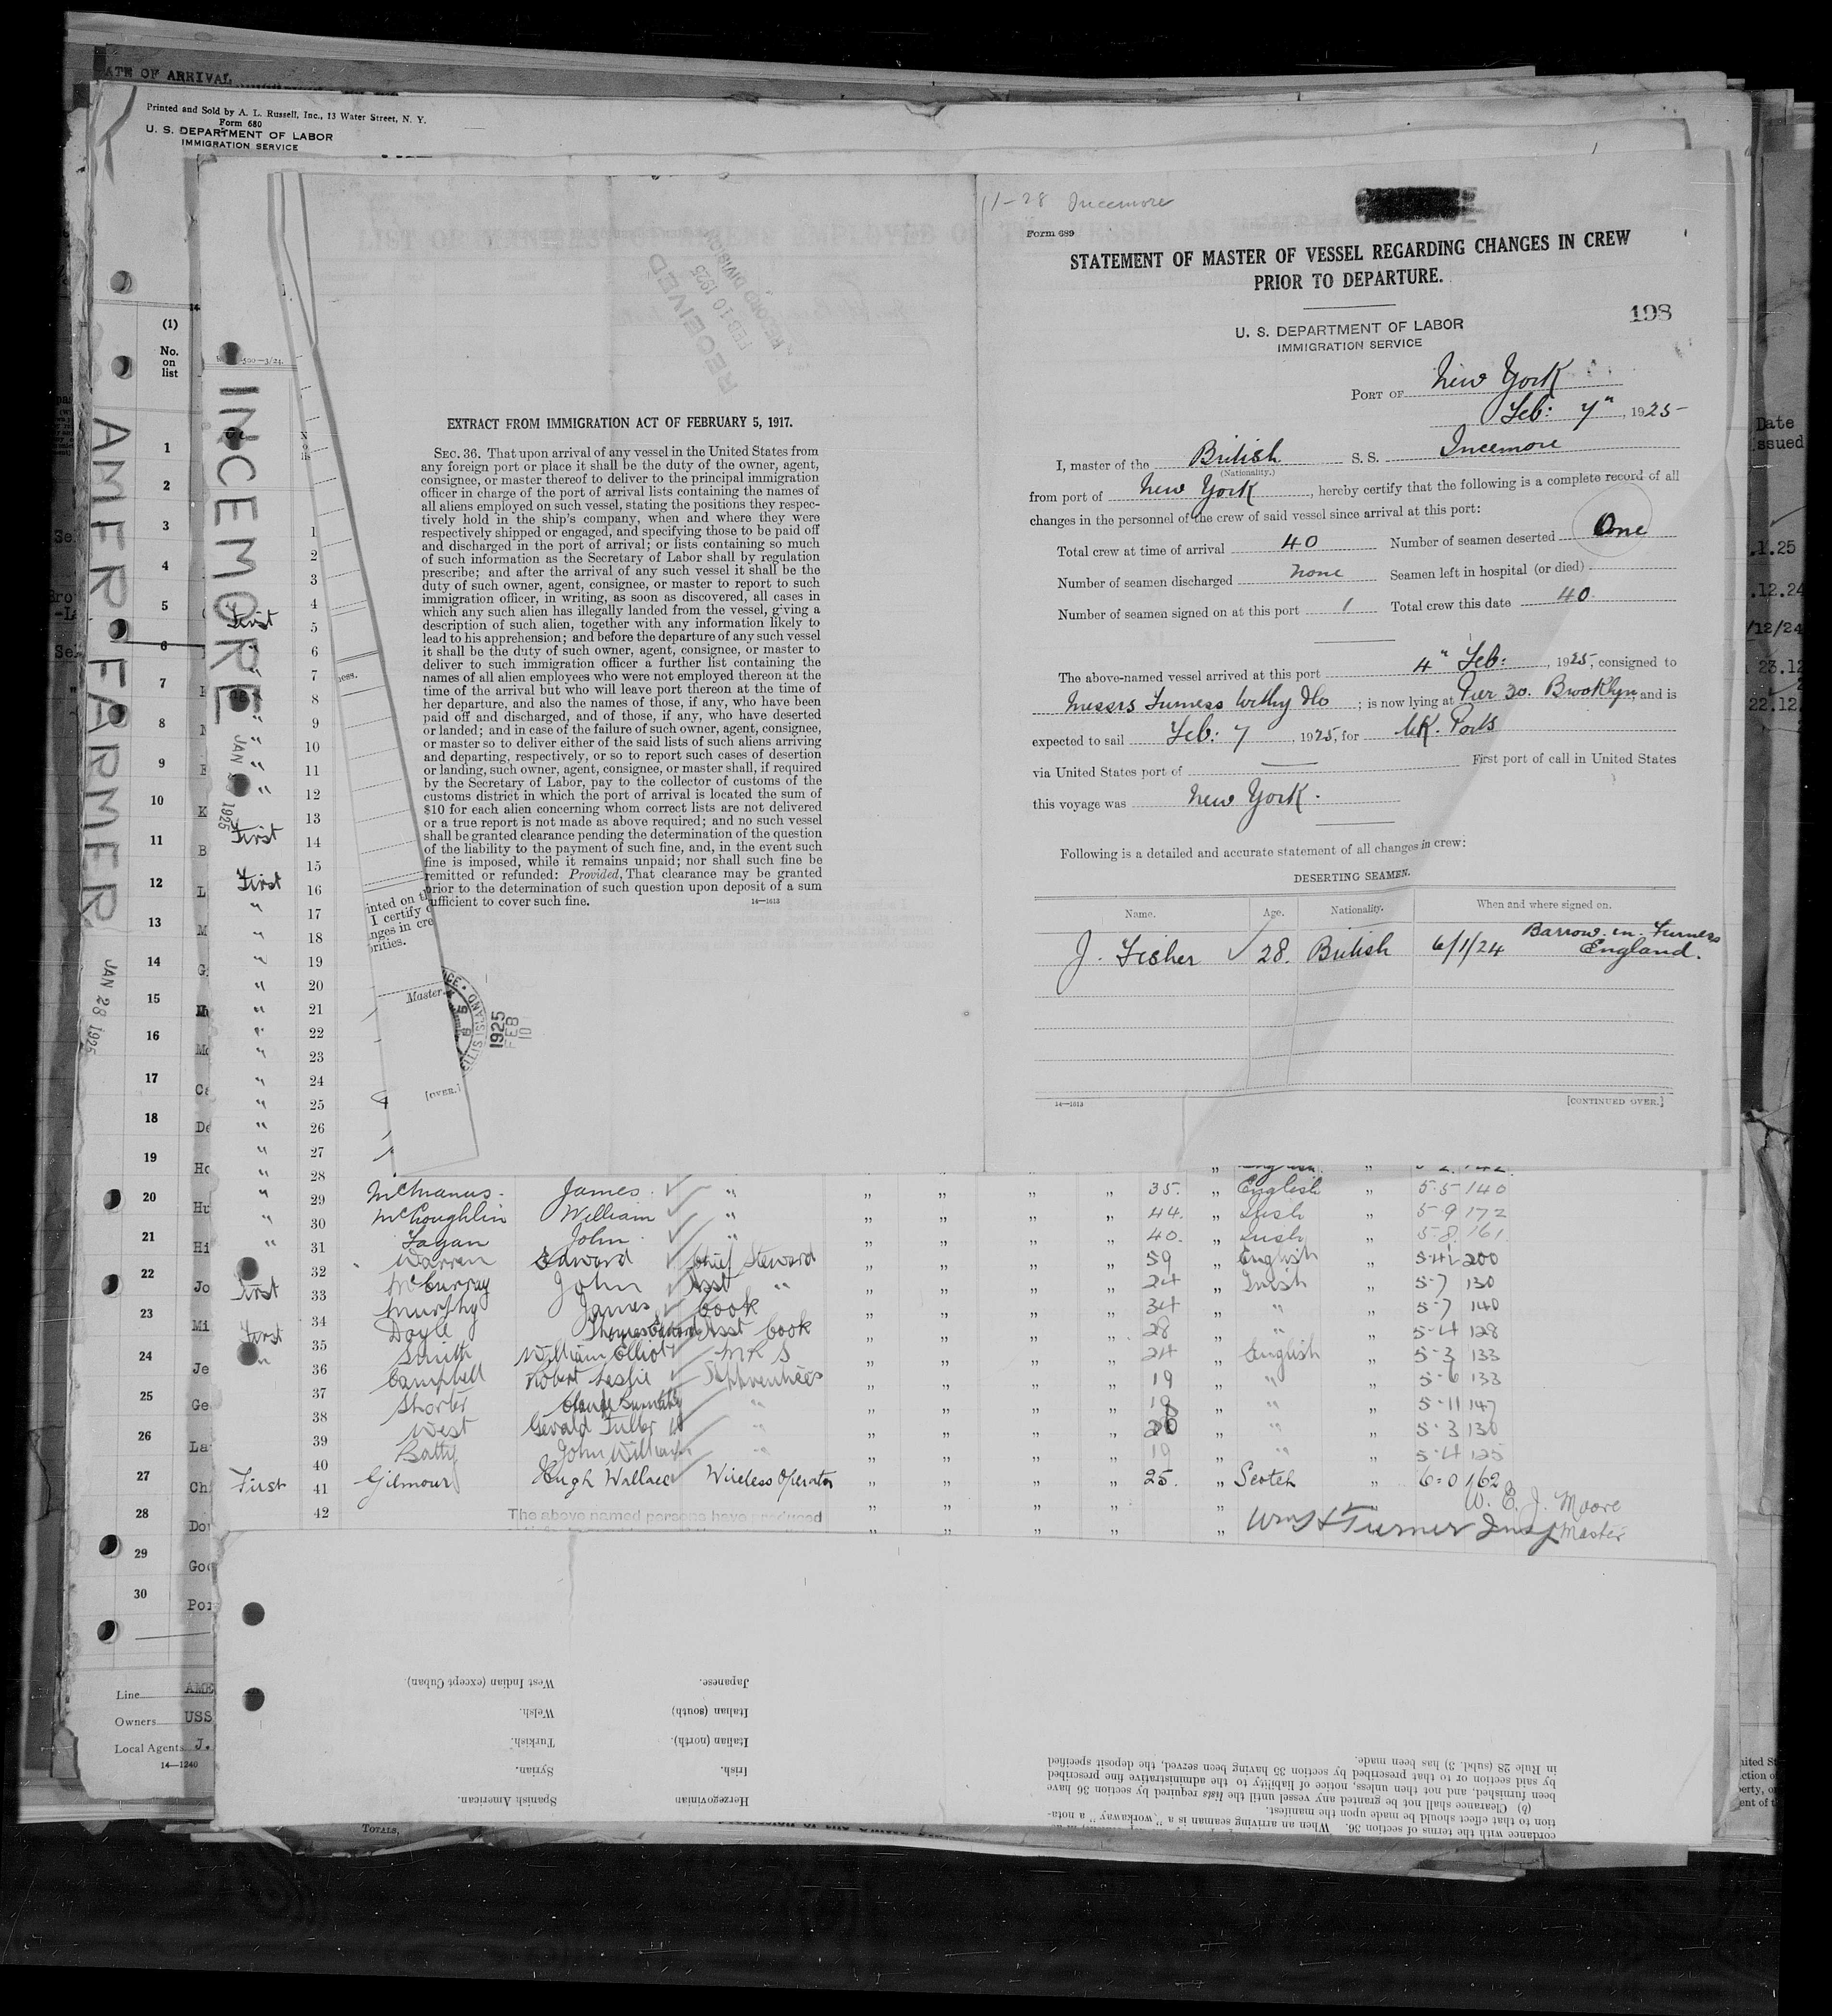 DATE OF ARRIVAL
Printed and Sold by A. L. Russell, Inc., 13 Water Street, N. Y.
Form 680
U. S. DEPARTMENT OF LABOR
IMMIGRATION SERVICE
(1)
No.
on
list
AMER FARMER
JAN 28 1925
INCEMORE
JAN 1925
RECEIVED
FEB 10 1925
RECORD DIVISION
EXTRACT FROM IMMIGRATION ACT OF FEBRUARY 5, 1917.
SEC. 36. That upon arrival of any vessel in the United States from
any foreign port or place it shall be the duty of the owner, agent,
consignee, or master thereof to deliver to the principal immigration
officer in charge of the port of arrival lists containing the names of
all aliens employed on such vessel, stating the positions they respec-
tively hold in the ship's company, when and where they were
respectively shipped or engaged, and specifying those to be paid off
and discharged in the port of arrival; or lists containing so much
of such information as the Secretary of Labor shall by regulation
prescribe; and after the arrival of any such vessel it shall be the
duty of such owner, agent, consignee, or master to report to such
immigration officer, in writing, as soon as discovered, all cases in
which any such alien has illegally landed from the vessel, giving a
description of such alien, together with any information likely to
lead to his apprehension; and before the departure of any such vessel
it shall be the duty of such owner, agent, consignee, or master to
deliver to such immigration officer a further list containing the
names of all alien employees who were not employed thereon at the
time of the arrival but who will leave port thereon at the time of
her departure, and also the names of those, if any, who have been
paid off and discharged, and of those, if any, who have deserted
or landed; and in case of the failure of such owner, agent, consignee,
or master so to deliver either of the said lists of such aliens arriving
and departing, respectively, or so to report such cases of desertion
or landing, such owner, agent, consignee, or master shall, if required
by the Secretary of Labor, pay to the collector of customs of the
customs district in which the port of arrival is located the sum of
$10 for each alien concerning whom correct lists are not delivered
or a true report is not made as above required; and no such vessel
shall be granted clearance pending the determination of the question
of the liability to the payment of such fine, and, in the event such
fine is imposed, while it remains unpaid; nor shall such fine be
remitted or refunded: Provided, That clearance may be granted
prior to the determination of such question upon deposit of a sum
sufficient to cover such fine.
14—1613
I certify
Master.
[OVER.]
ELLIS ISLAND
1925
FEB
10
11-28 Incemore
Form 689
STATEMENT OF MASTER OF VESSEL REGARDING CHANGES IN CREW
PRIOR TO DEPARTURE.
198
U. S. DEPARTMENT OF LABOR
IMMIGRATION SERVICE
PORT OF New York
Feb: 7", 1925
I, master of the British S. S. Incemore
(Nationality.)
from port of New York, hereby certify that the following is a complete record of all
changes in the personnel of the crew of said vessel since arrival at this port:
Total crew at time of arrival 40 Number of seamen deserted One
Number of seamen discharged none Seamen left in hospital (or died)
Number of seamen signed on at this port 1 Total crew this date 40
The above-named vessel arrived at this port 4" Feb:, 1925, consigned to
Messrs Furness Withy & Co; is now lying at Pier 30. Brooklyn, and is
expected to sail Feb: 7, 1925, for UK. Ports
via United States port of — First port of call in United States
this voyage was New York.
Following is a detailed and accurate statement of all changes in crew:
DESERTING SEAMEN.
Name. Age. Nationality. When and where signed on.
J. Fisher 28. British 6/1/24 Barrow in Furness
England.
14—1613 [CONTINUED OVER.]
29 McManus James " 35. English 5-5 140
30 McLoughlin William " 44. Irish 5-9 172
31 Fagan John " 40. Irish 5-8 161
32 Warren Edward Chief Steward 59 English 200
First 33 McCurray John Asst " 24 Irish 5-7 130
34 Murphy James Cook 34 " 5-7 140
First 35 Doyle Asst Cook 28 " 5-4 128
" 36 Smith William Elliot 24 English 5-3 133
37 Campbell Robert Leslie Apprentices 19 " 5-6 133
38 Shorter " " 5-11 147
39 West Gerald Fuller " 20 " 5-3 130
40 Batty John William " 19 " 5-4 125
First 41 Gilmour Hugh Wallace Wireless Operator 25. Scotch 6-0 162
42
The above named persons have produced
W. E. J. Moore
Master
Wm H Turner Insp
Line AME
Owners USS
Local Agents J.
14—1240
West Indian (except Cuban)
Welsh.
Turkish.
Syrian.
Spanish American.
Japanese.
Italian (south)
Italian (north).
Irish.
Herzegovinian
cordance with the terms of section 36. When an arriving seaman is a "workaway" a nota-
tion to that effect should be made upon the manifest.
(b) Clearance shall not be granted any vessel until the lists required by section 36 have
been furnished, and not then unless, notice of liability to the administrative fine prescribed
by said section or to that prescribed by section 35 having been served, the deposit specified
in Rule 28 (subd. 3) has been made.
TOTALS,